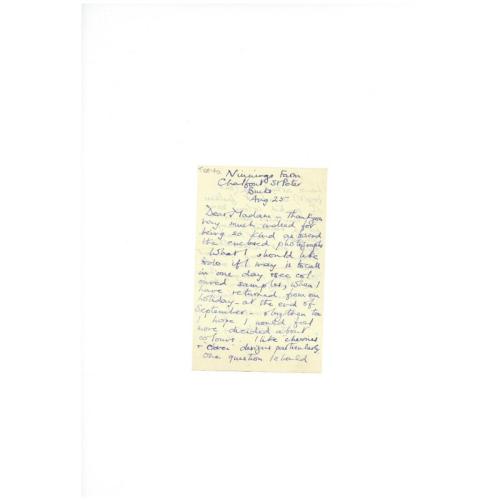 Ninnings Farm
Chalfont St Peter
Bucks
Aug 25
Dear Madam - Thank you
very much indeed for
being so kind as to send
the enclosed photographs
What I should like
to do if I may is to call
in one day & see col-
oured samples, when I
have returned from our
holiday - at the end of
September - & by then too
I hope I would feel
more decided about
colours. I like cherries
& designs particularly
One question I should